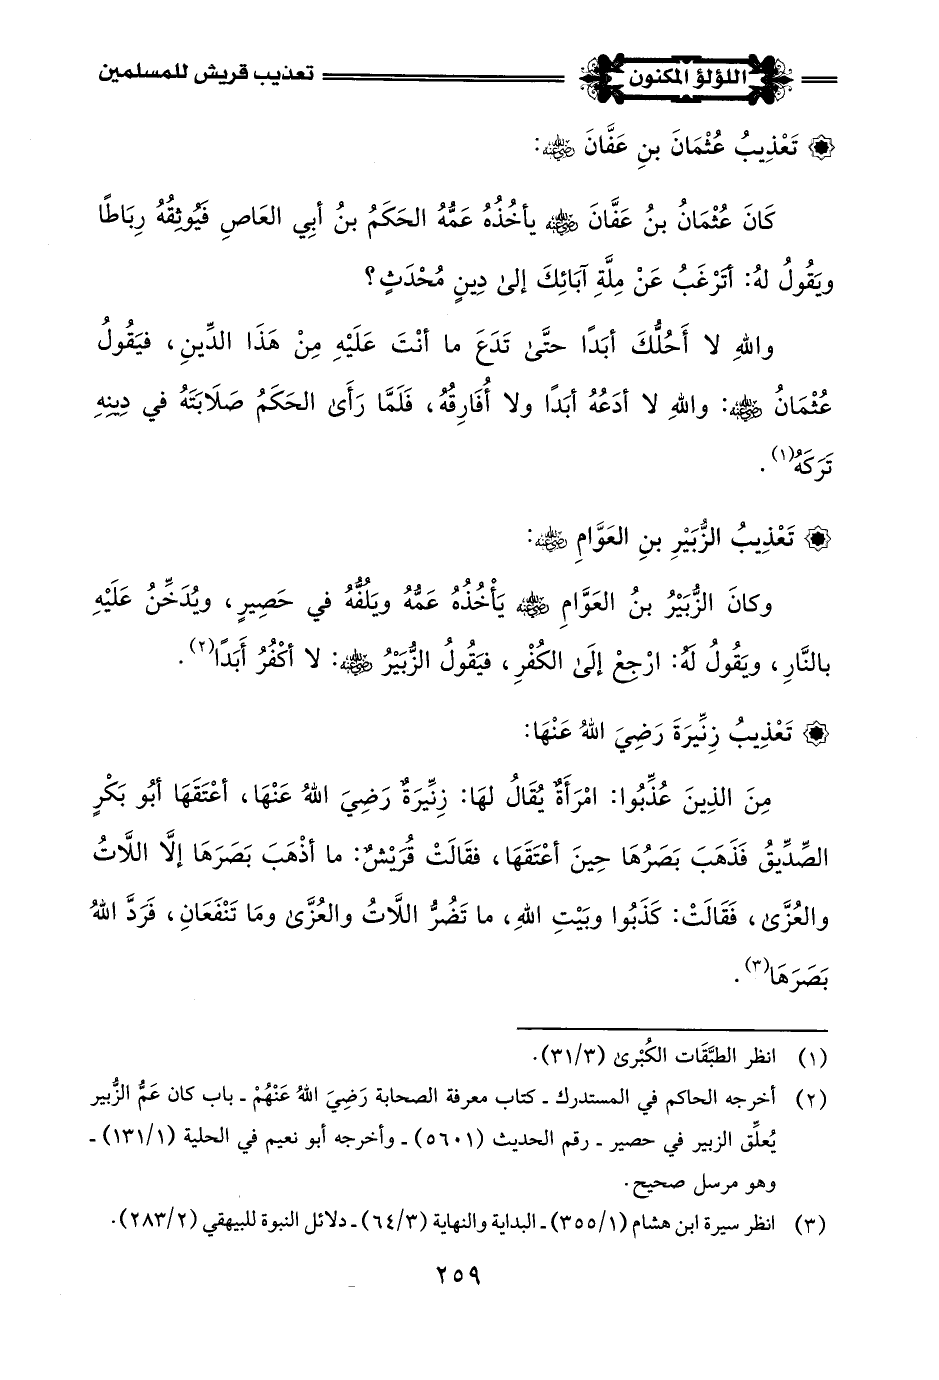 اللؤلؤ المكنون تعذيب قريش للمسلمين
تَعْذِيبُ عُثْمَانَ بنِ عَفَّانَ رضي الله عنه:
كَانَ عُثْمَانُ بنُ عَفَّانَ رضي الله عنه يأخُذُهُ عَمُّهُ الحَكَمُ بنُ أبِي العَاصِ فَيُوثِقُهُ رِبَاطًا
ويَقُولُ لهُ: أتَرْغَبُ عَنْ مِلَّةِ آبَائِكَ إلىٰ دِينٍ مُحْدَثٍ؟
واللهِ لا أَحُلُّكَ أبَدًا حتَّىٰ تَدَعَ ما أنْتَ عَلَيْهِ مِنْ هَذَا الدِّينِ، فيَقُولُ
عُثْمَانُ رضي الله عنه: واللهِ لا أدَعُهُ أبَدًا ولا أُفَارِقُهُ، فَلَمَّا رَأَىٰ الحَكَمُ صَلَابَتَهُ في دِينِهِ
تَرَكَهُ(١).
تَعْذِيبُ الزُّبَيْرِ بنِ العَوَّامِ رضي الله عنه:
وكانَ الزُّبَيْرُ بنُ العَوَّامِ رضي الله عنه يَأْخُذُهُ عَمُّهُ ويَلُفُّهُ في حَصِيرٍ، ويُدَخِّنُ عَلَيْهِ
بالنَّارِ، ويَقُولُ لَهُ: ارْجِعْ إلَىٰ الكُفْرِ، فيَقُولُ الزُّبَيْرُ رضي الله عنه: لا أكْفُرُ أَبَدًا(٢).
تَعْذِيبُ زِنِّيرَةَ رَضِيَ اللهُ عَنْهَا:
مِنَ الذِينَ عُذِّبُوا: امْرَأَةٌ يُقَالُ لهَا: زِنِّيرَةٌ رَضِيَ اللهُ عَنْهَا، أعْتَقَهَا أبُو بَكْرٍ
الصِّدِّيقُ فَذَهَبَ بَصَرُهَا حِينَ أعْتَقَهَا، فقَالَتْ قُرَيْشٌ: ما أذْهَبَ بَصَرَهَا إلَّا اللَّاتُ
والعُزَّىٰ، فَقَالَتْ: كَذَبُوا وبَيْتِ اللهِ، ما تَضُرُّ اللَّاتُ والعُزَّىٰ ومَا تَنْفَعَانِ، فَرَدَّ اللهُ
بَصَرَهَا(٣).
(١) انظر الطبَّقَات الكُبْرىٰ (٣١/٣).
(٢) أخرجه الحاكم في المستدرك ـ كتاب معرفة الصحابة رَضِيَ اللهُ عَنْهُمْ ـ باب كان عَمُّ الزُّبير
يُعلِّق الزبير في حصير ـ رقم الحديث (٥٦٠١) ـ وأخرجه أبو نعيم في الحلية (١٣١/١) ـ
وهو مرسل صحيح.
(٣) انظر سيرة ابن هشام (٣٥٥/١) ـ البداية والنهاية (٦٤/٣) ـ دلائل النبوة للبيهقي (٢٨٣/٢).
٢٥٩